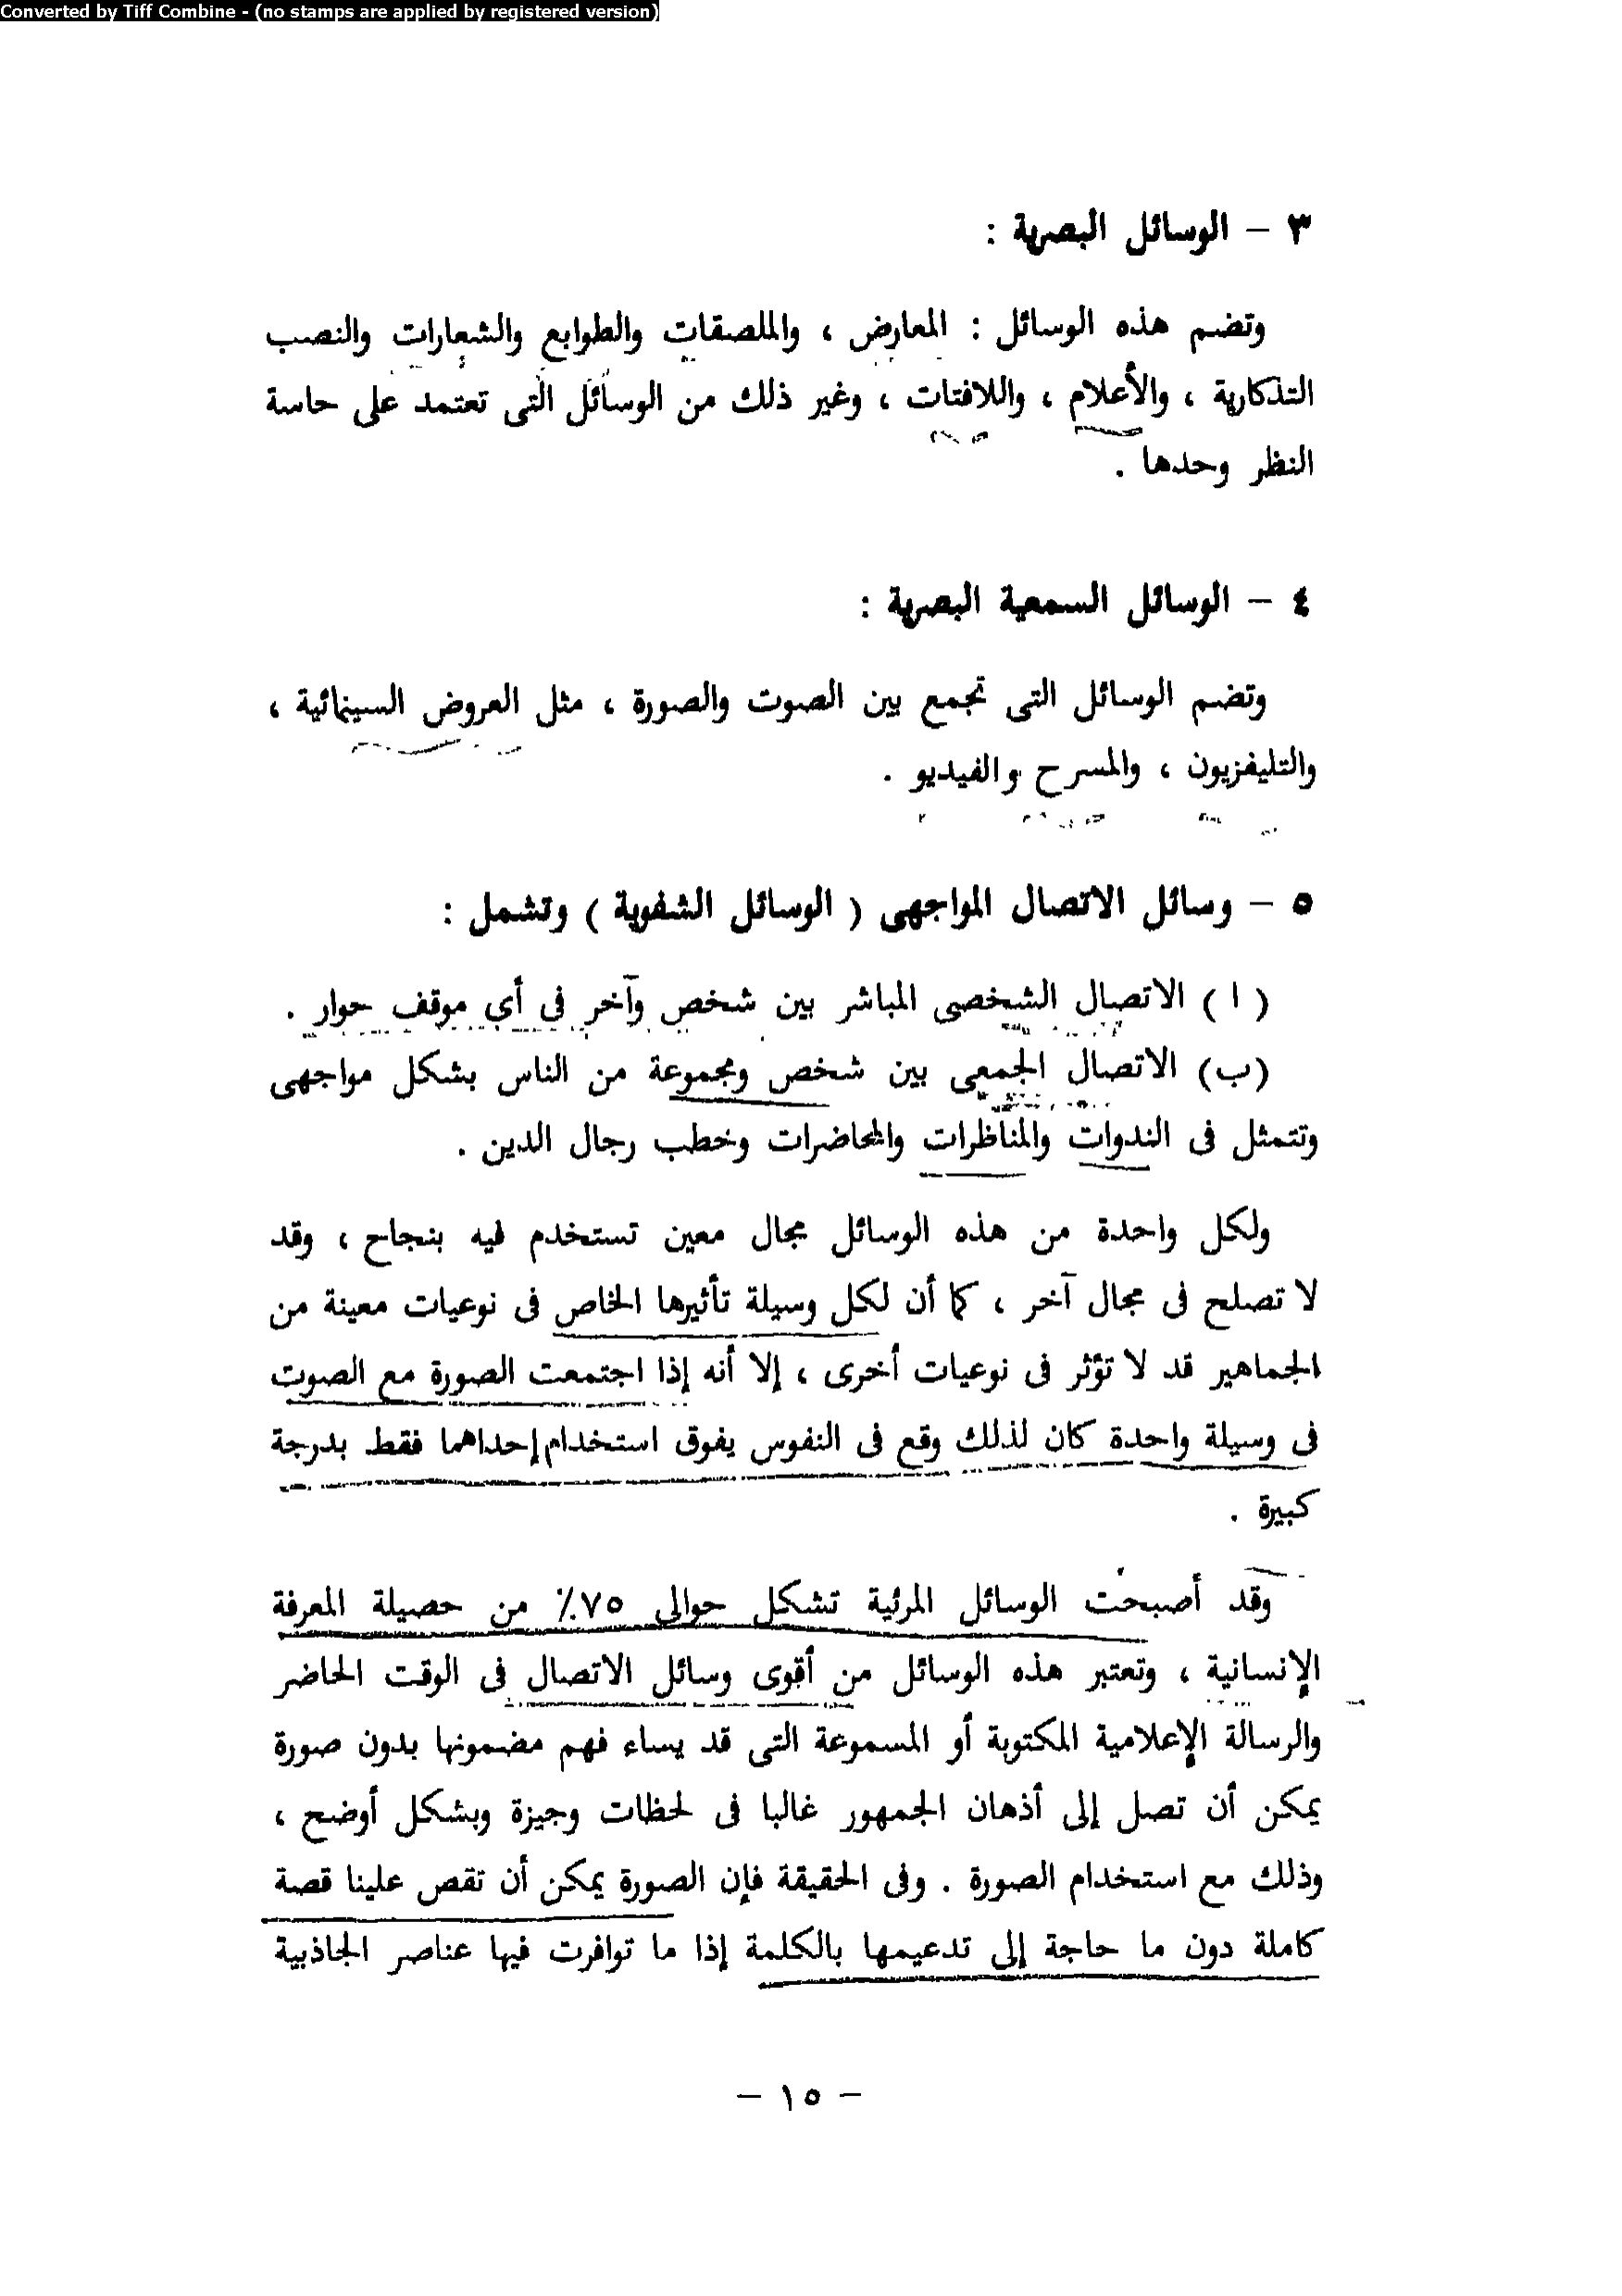 Converted by Tiff Combine - (no stamps are applied by registered version)
٣ – الوسائل البصرية :
وتضم هذه الوسائل : المعارض ، والملصقات والطوابع والشعارات والنصب
التذكارية ، والأعلام ، واللافتات ، وغير ذلك من الوسائل التى تعتمد على حاسة
النظر وحدها .
٤ – الوسائل السمعية البصرية :
وتضم الوسائل التى تجمع بين الصوت والصورة ، مثل العروض السينمائية ،
والتليفزيون ، والمسرح والفيديو .
٥ – وسائل الاتصال المواجهى ( الوسائل الشفوية ) وتشمل :
( ا ) الاتصال الشخصى المباشر بين شخص وآخر فى أى موقف حوار .
(ب) الاتصال الجمعى بين شخص ومجموعة من الناس بشكل مواجهى
وتتمثل فى الندوات والمناظرات والمحاضرات وخطب رجال الدين .
ولكل واحدة من هذه الوسائل مجال معين تستخدم فيه بنجاح ، وقد
لا تصلح فى مجال آخر ، كما أن لكل وسيلة تأثيرها الخاص فى نوعيات معينة من
الجماهير قد لا تؤثر فى نوعيات أخرى ، إلا أنه إذا اجتمعت الصورة مع الصوت
فى وسيلة واحدة كان لذلك وقع فى النفوس يفوق استخدام إحداهما فقط بدرجة
كبيرة .
وقد أصبحت الوسائل المرئية تشكل حوالى ٧٥٪ من حصيلة المعرفة
الإنسانية ، وتعتبر هذه الوسائل من أقوى وسائل الاتصال فى الوقت الحاضر
والرسالة الإعلامية المكتوبة أو المسموعة التى قد يساء فهم مضمونها بدون صورة
يمكن أن تصل إلى أذهان الجمهور غالبا فى لحظات وجيزة وبشكل أوضح ،
وذلك مع استخدام الصورة . وفى الحقيقة فإن الصورة يمكن أن تقص علينا قصة
كاملة دون ما حاجة إلى تدعيمها بالكلمة إذا ما توافرت فيها عناصر الجاذبية
– ١٥ –